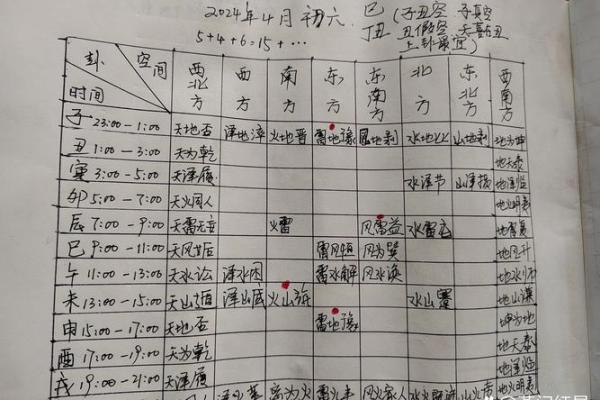 2024年4月初六 巳 (子丑空 子真空
5+4+6=15+… 丁丑 丑假空
卦 空间 时间 西北方 西方 南方 东方 东南方 北方 东北方 西南方
子 23:00-1:00 天地否 泽地萃 火地晋 雷地豫 水地比 山地剥 地为坤
丑 1:00-3:00 天为乾 地天泰
寅 3:00-5:00 天泽履 水泽节 山泽损 地泽临
卯 5:00-7:00 天火同人 地火明夷
辰 7:00-9:00 天雷无妄 火雷 风雷益 水雷屯 地雷复
巳 9:00-11:00 天风姤 雷风恒 风为巽 地风升
午 11:00-13:00 天水讼 泽水困 雷水解 风水涣 地水师
未 13:00-15:00 天山遁 泽山咸 火山旅 水山蹇 地山谦
申 15:00-17:00 天地否 雷地豫 坤为地
酉 17:00-19:00 天为乾 地天泰
戌 19:00-21:00 天泽履 地泽临
离为火 风火家人 地火明夷